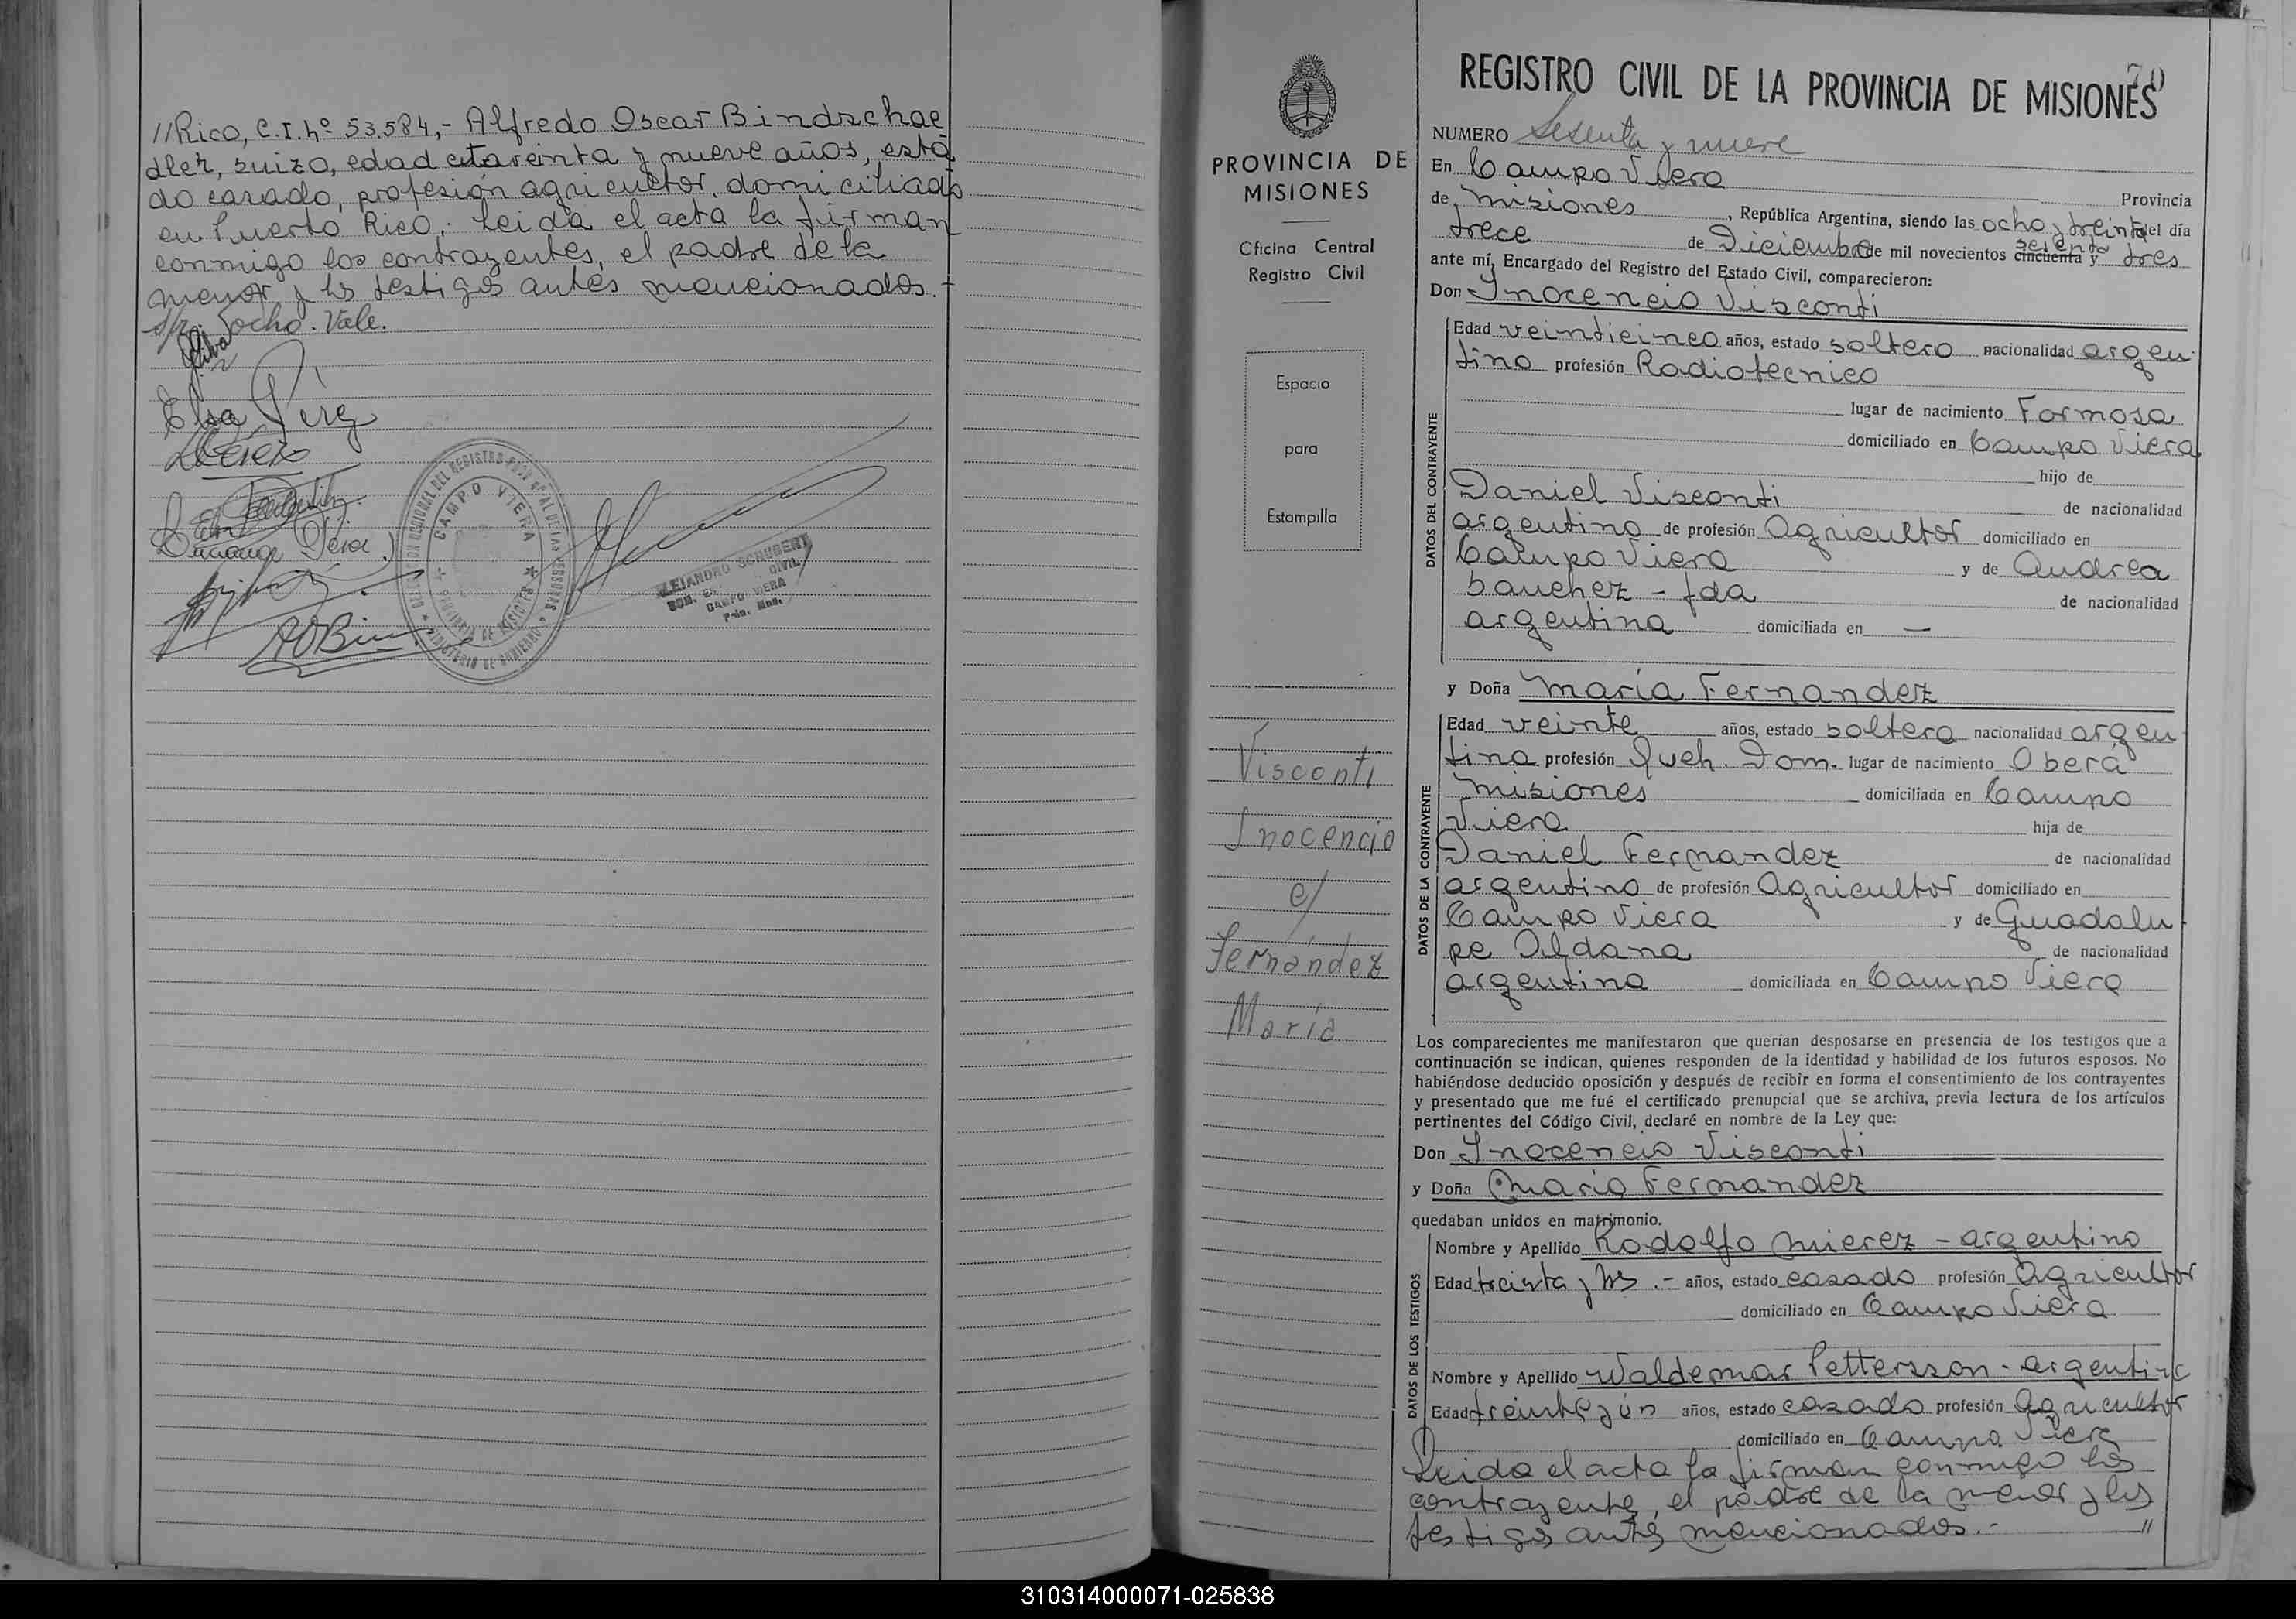 //Rico, C.I. nº 53.584,- Alfredo Oscar Bindschae
dler, suizo, edad cuareinta y nueve años, esta
do casado, profesión agricultor, domiciliado
en Puerto Rico.- Leida el acta la firman
conmigo los contrayentes, el padre de la
menor y los testigos antes mencionados.-
s/r. ocho. Vale.
Elsa
CAMPO VIERA
PROVINCIA DE MISIONES
ALEJANDRO SCHUBERT
CIVIL
CAMPO VIERA
Pcia. Mnes.
PROVINCIA DE
MISIONES
Oficina Central
Registro Civil
Espacio
para
Estampilla
Visconti
Inocencio
c/
Fernández
María
70
REGISTRO CIVIL DE LA PROVINCIA DE MISIONES
NUMERO Sesenta y nueve
En Campo Viera
Provincia
de Misiones, República Argentina, siendo las ocho y treinta del día
trece de Diciembre de mil novecientos cincuenta y sesenta tres
ante mí, Encargado del Registro del Estado Civil, comparecieron:
Don Inocencio Visconti
DATOS DEL CONTRAYENTE
Edad veinticinco años, estado soltero nacionalidad argen
tino profesión Radiotecnico
lugar de nacimiento Formosa
domiciliado en Campo Viera
hijo de
Daniel Visconti de nacionalidad
argentino de profesión Agricultor domiciliado en
Campo Viera y de Andrea
Sanchez - fda de nacionalidad
argentina domiciliada en —
y Doña María Fernandez
DATOS DE LA CONTRAYENTE
Edad veinte años, estado soltera nacionalidad argen
tina profesión Queh. Dom. lugar de nacimiento Oberá
Misiones domiciliada en Campo
Viera hija de
Daniel Fernandez de nacionalidad
argentino de profesión Agricultor domiciliado en
Campo Viera y de Guadalu
pe Aldana de nacionalidad
argentina domiciliada en Campo Viera
Los comparecientes me manifestaron que querían desposarse en presencia de los testigos que a
continuación se indican, quienes responden de la identidad y habilidad de los futuros esposos. No
habiéndose deducido oposición y después de recibir en forma el consentimiento de los contrayentes
y presentado que me fué el certificado prenupcial que se archiva, previa lectura de los artículos
pertinentes del Código Civil, declaré en nombre de la Ley que:
Don Inocencio Visconti
y Doña María Fernandez
quedaban unidos en matrimonio.
DATOS DE LOS TESTIGOS
Nombre y Apellido Rodolfo Mierez - argentino
Edad treinta y tres .- años, estado casado profesión Agricultor
domiciliado en Campo Viera
Nombre y Apellido Waldemar Pettersson - argentino
Edad treinta y un años, estado casado profesión agricultor
domiciliado en Campo Viera
Leida el acta la firman conmigo los
contrayente, el padre de la menor y los
testigos antes mencionados.- //
310314000071-025838